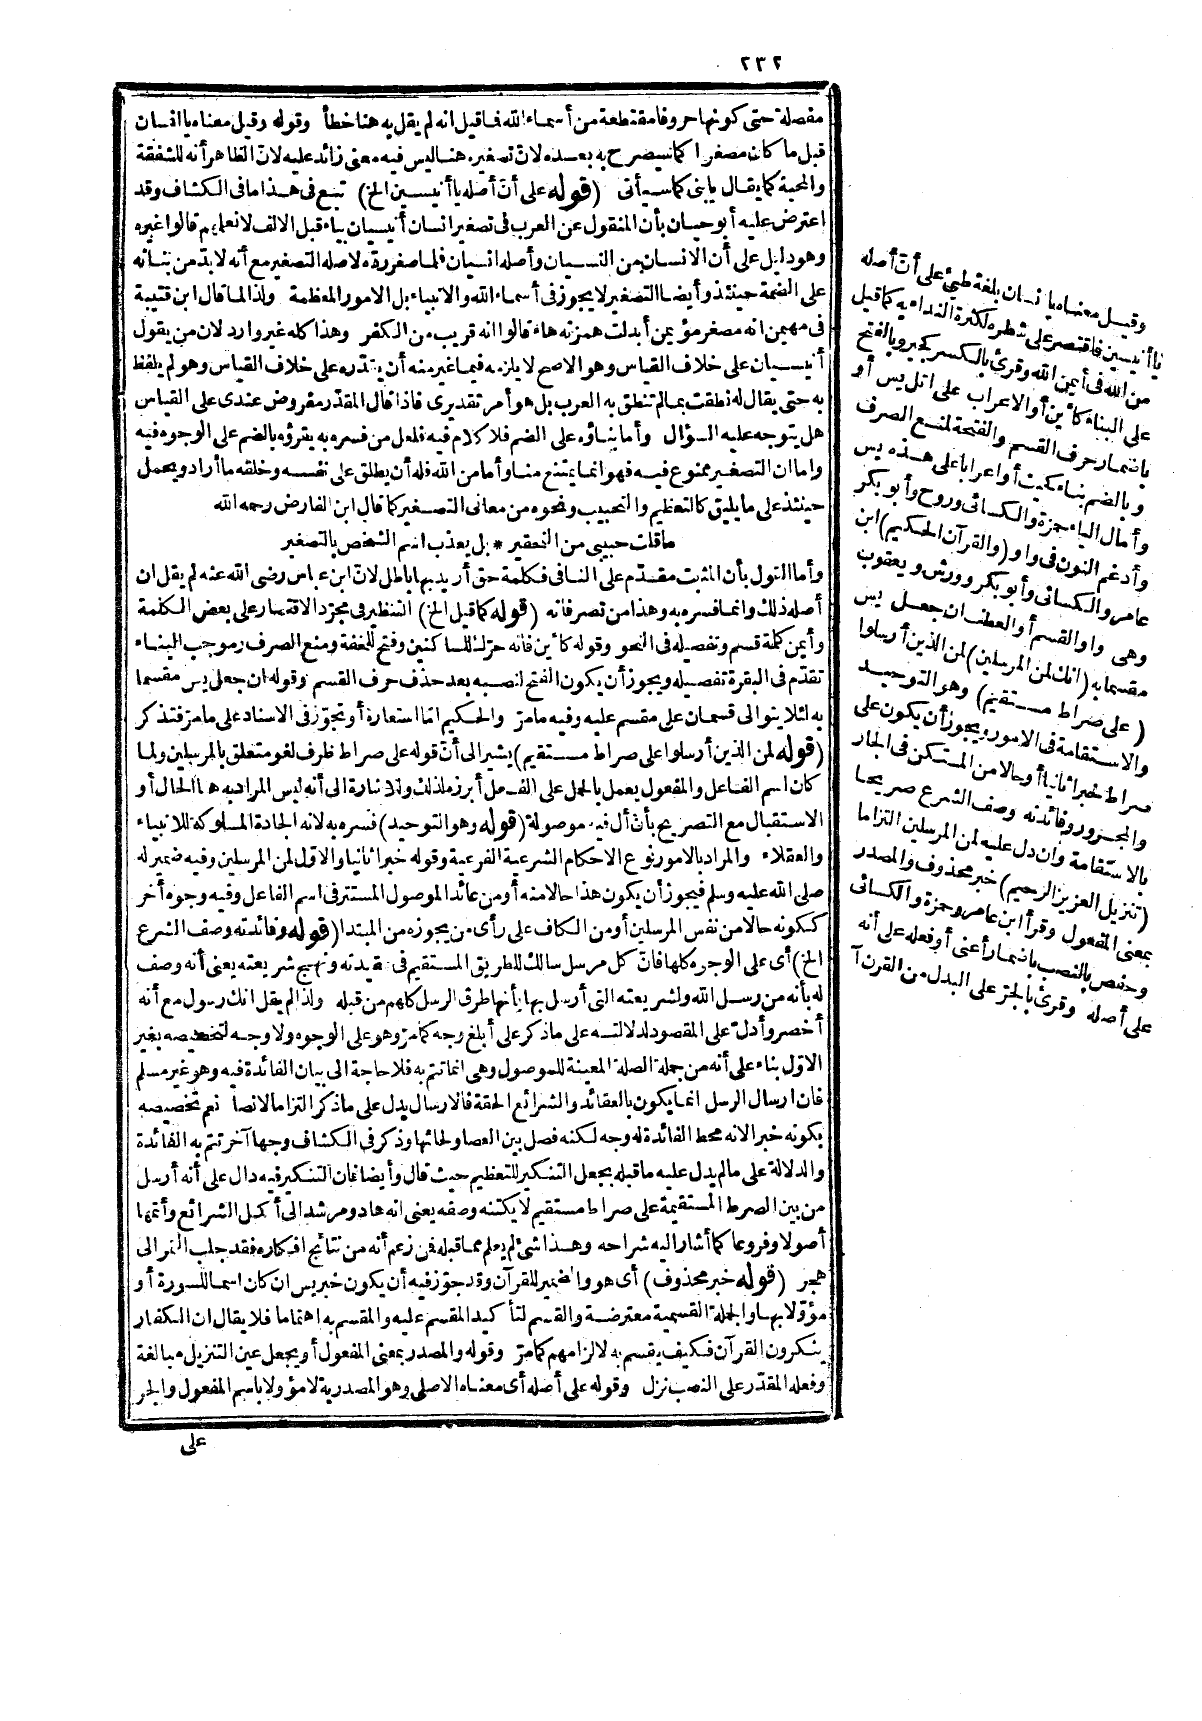 ٢٣٢
مفصلة حتى كونها حروفا مقتطعة من أسماء الله فما قيل انه لم يقل به هنا خطأ وقوله وقيل معناه يا انسان
قيل ما كان مصغرا كما سيصرح به بعده لان تصغيره هنا ليس فيه معنى زائد عليه لان الظاهر أنه للشفقة
والمحبة كما يقال يا بنى كما سيأتى (قوله على أن أصله يا أنيسين الخ) تبع فى هذا ما فى الكشاف وقد
اعترض عليه أبو حيان بأن المنقول عن العرب فى تصغير انسان أنيسيان بياء قبل الالف لا نعلمهم قالوا غيره
وهو دليل على أن الانسان من النسيان وأصله انسيان فلما صغر رده لاصله التصغير مع أنه لا بد من بنائه
على الضمة حينئذ وأيضا التصغير لا يجوز فى أسماء الله والانبياء بل الامور المعظمة ولذا لما قال ابن قتيبة
فى مهيمن انه مصغر مؤيمن أبدلت همزته هاء قالوا انه قريب من الكفر وهذا كله غير وارد لان من يقول
أنيسيان على خلاف القياس وهو الاصح لا يلزمه فيما غير منه أن يقدره على خلاف القياس وهو لم يلفظ
به حتى يقال له نطقت بما لم تنطق به العرب بل هو أمر تقديرى فاذا قال المقدر مفروض عندى على القياس
هل يتوجه عليه السؤال وأما بناؤه على الضم فلا كلام فيه فلعل من فسره به يقرؤه بالضم على الوجوه فيه
واما ان التصغير ممنوع فيه فهو انما يمتنع منا وأما من الله فله أن يطلق على نفسه وخلقه ما أراد ويحمل
حينئذ على ما يليق كالتعظيم والتحبيب ونحوه من معانى التصغير كما قال ابن الفارض رحمه الله
ما قلت حبيبى من التحقير * بل يعذب اسم الشخص بالتصغير
وأما القول بأن المثبت مقدم على النافى فكلمة حق أريد بها باطل لان ابن عباس رضى الله عنه لم يقل ان
أصله ذلك وانما فسره به وهذا من تصرفاته (قوله كما قيل الخ) التنظير فى مجرد الاقتصار على بعض الكلمة
وأيمن كلمة قسم وتفصيله فى النحو وقوله كأين فانه حرك للساكنين وفتح للخفة ومنع الصرف وموجب البناء
تقدم فى البقرة تفصيله ويجوز أن يكون الفتح لنصبه بعد حذف حرف القسم وقوله ان جعل يس مقسما
به لئلا يتوالى قسمان على مقسم عليه وفيه ما مر والحكيم اما استعارة أو تجوز فى الاسناد على ما مر فتذكر
(قوله لمن الذين أرسلوا على صراط مستقيم) يشير الى أن قوله على صراط ظرف لغو متعلق بالمرسلين ولما
كان اسم الفاعل والمفعول يعمل بالحمل على الفعل أبرزه لذلك وللاشارة الى أنه ليس المراد به هنا الحال أو
الاستقبال مع التصريح بأن أل فيه موصولة (قوله وهو التوحيد) فسره به لانه الجادة المسلوكة للانبياء
والعقلاء والمراد بالامور نوع الاحكام الشرعية الفرعية وقوله خبرا ثانيا والاول لمن المرسلين وفيه ضمير له
صلى الله عليه وسلم فيجوز أن يكون هذا حالا منه أو من عائد الموصول المستتر فى اسم الفاعل وفيه وجوه أخر
ككونه حالا من نفس المرسلين أو من الكاف على رأى من يجوزه من المبتدا (قوله وفائدته وصف الشرع
الخ) أى على الوجوه كلها فان كل مرسل سالك للطريق المستقيم فى عقيدته ونهج شريعته يعنى أنه وصف
له بأنه من رسل الله ولشريعته التى أرسل بها بأنها طرق الرسل كلهم من قبله ولذا لم يقل انك رسول مع أنه
أخصر وأدل على المقصود لدلالته على ما ذكر على أبلغ وجه كما مر وهو على الوجوه ولا وجه لتخصيصه بغير
الاول بناء على أنه من جملة الصلة المعينة للموصول وهى انما تتم به فلا حاجة الى بيان الفائدة فيه وهو غير مسلم
فان ارسال الرسل انما يكون بالعقائد والشرائع الحقة فالارسال يدل على ما ذكر التزاما لا نصا نعم تخصيصه
بكونه خبرا لانه محط الفائدة له وجه لكنه فصل بين العصا ولحائها وذكر فى الكشاف وجها آخر تتم به الفائدة
والدلالة على ما لم يدل عليه ما قبله بجعل التنكير للتعظيم حيث قال وأيضا فان التنكير فيه دال على أنه أرسل
من بين الصرط المستقيمة على صراط مستقيم لا يكتنه وصفه يعنى انه هاد ومرشد الى أكمل الشرائع وأتمها
أصولا وفروعا كما أشار اليه شراحه وهذا شئ لم يعلم مما قبله فمن زعم أنه من نتائج افكاره فقد جلب التمر الى
هجر (قوله خبر محذوف) أى هو والضمير للقرآن وقد جوز فيه أن يكون خبر يس ان كان اسما للسورة أو
مؤولا بها والجملة القسمية معترضة والقسم لتأكيد المقسم عليه والمقسم به اهتماما فلا يقال ان الكفار
ينكرون القرآن فكيف يقسم به لالزامهم كما مر وقوله والمصدر بمعنى المفعول أو يجعل عين التنزيل مبالغة
وفعله المقدر على النصب نزل وقوله على أصله أى معناه الاصلى وهو المصدرية لا مؤولا باسم المفعول والجر
على
وقيل معناه يا انسان بلغة طيئ على أن أصله
يا أنيسين فاقتصر على شطره لكثرة النداء به كما قيل
من الله فى أيمن الله وقرئ بالكسر كجير وبالفتح
على البناء كأين أو الاعراب على اتل يس أو
باضمار حرف القسم والفتحة لمنع الصرف
وبالضم بناء كحيث أو اعرابا على هذه يس
وأمال الياء حمزة والكسائى وروح وأبو بكر
وأدغم النون فى واو (والقرآن الحكيم) ابن
عامر والكسائى وأبو بكر وورش ويعقوب
وهى واو القسم أو العطف ان جعل يس
مقسما به (انك لمن المرسلين) لمن الذين أرسلوا
(على صراط مستقيم) وهو التوحيد
والاستقامة فى الامور ويجوز أن يكون على
صراط خبرا ثانيا أو حالا من المستكن فى الجار
والمجرور وفائدته وصف الشرع صريحا
بالاستقامة وان دل عليه لمن المرسلين التزاما
(تنزيل العزيز الرحيم) خبر محذوف والمصدر
بمعنى المفعول وقرأ ابن عامر وحمزة والكسائى
وحفص بالنصب باضمار أعنى أو فعله على أنه
على أصله وقرئ بالجر على البدل من القرآن